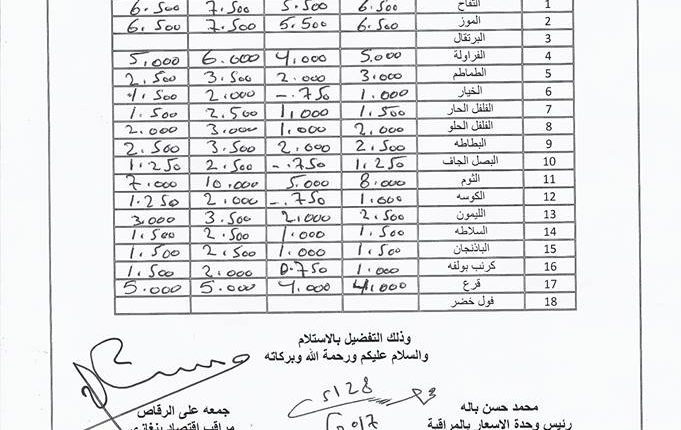 1 التفاح 6.500 5.500 7.500 6.500
2 الموز 6.500 5.500 7.500 6.500
3 البرتقال
4 الفراولة 5.000 4,000 6.000 5,000
5 الطماطم 3,000 2.000 3.500 2,500
6 الخيار 1.000 -.750 2,000 1,500
7 الفلفل الحار 1,500 1,000 2,500 1,500
8 الفلفل الحلو 2,000 1,000 3,000 2.000
9 البطاطه 2,500 2,000 3,500 2,500
10 البصل الجاف 1,250 -.750 2,500 1,250
11 الثوم 8.000 5.000 10,000 7,000
12 الكوسه 1,000 -.750 2,000 1.250
13 الليمون 2,500 2,000 3.500 3,000
14 السلاطه 1,500 1,000 2,500 1,500
15 الباذنجان 1,500 1,000 2,500 1,500
16 كرنب بولفه 1,000 0.750 2,000 1,500
17 قرع 4,000 4,000 5,000 5,000
18 فول خضر
وذلك التفضيل بالاستلام
والسلام عليكم ورحمة الله وبركاته
محمد حسن باله
رئيس وحدة الاسعار بالمراقبة
5/28
2017
جمعه على الرقاص
مراقب اقتصاد بنغازي